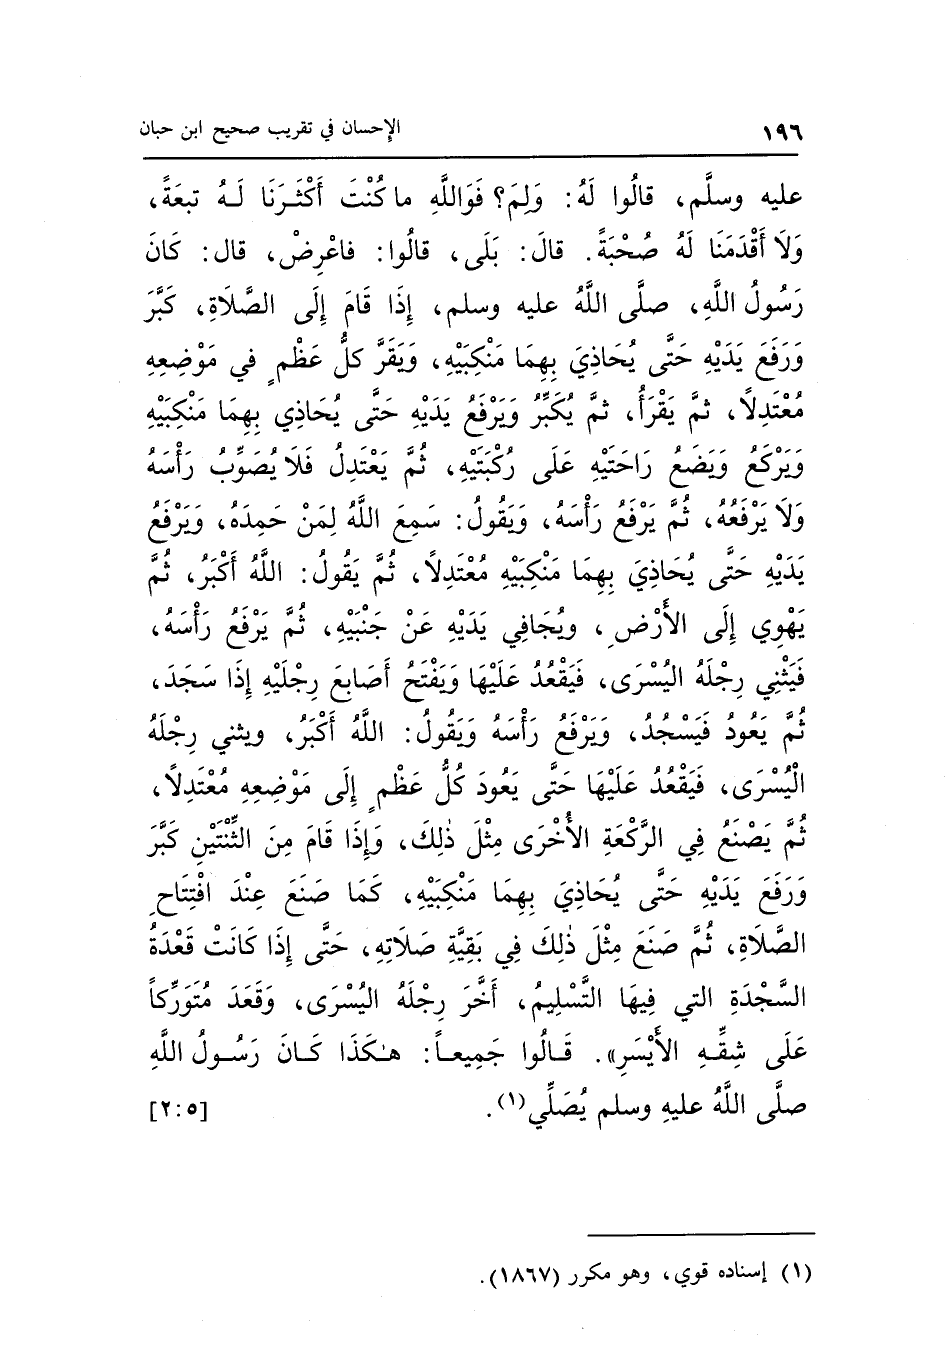 ١٩٦ الإحسان في تقريب صحيح ابن حبان
عليه وسلَّم، قالُوا لَهُ: وَلِمَ؟ فَوَاللَّهِ ما كُنْتَ أَكْثَرَنَا لَهُ تبعَةً،
وَلَا أَقْدَمَنَا لَهُ صُحْبَةً. قالَ: بَلَى، قالُوا: فاعْرِضْ، قال: كَانَ
رَسُولُ اللَّهِ، صلَّى اللَّهُ عليه وسلم، إِذَا قَامَ إِلَى الصَّلَاةِ، كَبَّرَ
وَرَفَعَ يَدَيْهِ حَتَّى يُحَاذِيَ بِهِمَا مَنْكِبَيْهِ، وَيَقَرَّ كلُّ عَظْمٍ في مَوْضِعِهِ
مُعْتَدِلًا، ثمَّ يَقْرَأُ، ثمَّ يُكَبِّرُ وَيَرْفَعُ يَدَيْهِ حَتَّى يُحَاذِي بِهِمَا مَنْكِبَيْهِ
وَيَرْكَعُ وَيَضَعُ رَاحَتَيْهِ عَلَى رُكْبَتَيْهِ، ثُمَّ يَعْتَدِلُ فَلَا يُصَوِّبُ رَأْسَهُ
وَلَا يَرْفَعُهُ، ثُمَّ يَرْفَعُ رَأْسَهُ، وَيَقُولُ: سَمِعَ اللَّهُ لِمَنْ حَمِدَهُ، وَيَرْفَعُ
يَدَيْهِ حَتَّى يُحَاذِيَ بِهِمَا مَنْكِبَيْهِ مُعْتَدِلًا، ثُمَّ يَقُولُ: اللَّهُ أَكْبَرُ، ثُمَّ
يَهْوِي إِلَى الأَرْضِ، ويُجَافِي يَدَيْهِ عَنْ جَنْبَيْهِ، ثُمَّ يَرْفَعُ رَأْسَهُ،
فَيَثْنِي رِجْلَهُ اليُسْرَى، فَيَقْعُدُ عَلَيْهَا وَيَفْتَحُ أَصَابعَ رِجْلَيْهِ إِذَا سَجَدَ،
ثُمَّ يَعُودُ فَيَسْجُدُ، وَيَرْفَعُ رَأْسَهُ وَيَقُولُ: اللَّهُ أَكْبَرُ، ويثني رِجْلَهُ
الْيُسْرَى، فَيَقْعُدُ عَلَيْهَا حَتَّى يَعُودَ كُلُّ عَظْمٍ إِلَى مَوْضِعِهِ مُعْتَدِلًا،
ثُمَّ يَصْنَعُ فِي الرَّكْعَةِ الأُخْرَى مِثْلَ ذٰلِكَ، وَإِذَا قَامَ مِنَ الثِّنْتَيْنِ كَبَّرَ
وَرَفَعَ يَدَيْهِ حَتَّى يُحَاذِيَ بِهِمَا مَنْكِبَيْهِ، كَمَا صَنَعَ عِنْدَ افْتِتَاحِ
الصَّلَاةِ، ثُمَّ صَنَعَ مِثْلَ ذٰلِكَ فِي بَقِيَّةِ صَلَاتِهِ، حَتَّى إِذَا كَانَتْ قَعْدَةُ
السَّجْدَةِ التي فِيهَا التَّسْلِيمُ، أَخَّرَ رِجْلَهُ اليُسْرَى، وَقَعَدَ مُتَوَرِّكاً
عَلَى شِقِّهِ الأَيْسَرِ». قَالُوا جَمِيعاً: هٰكَذَا كَانَ رَسُولُ اللَّهِ
صلَّى اللَّهُ عليهِ وسلم يُصَلِّي(١). [٢:٥]
(١) إسناده قوي، وهو مكرر (١٨٦٧).